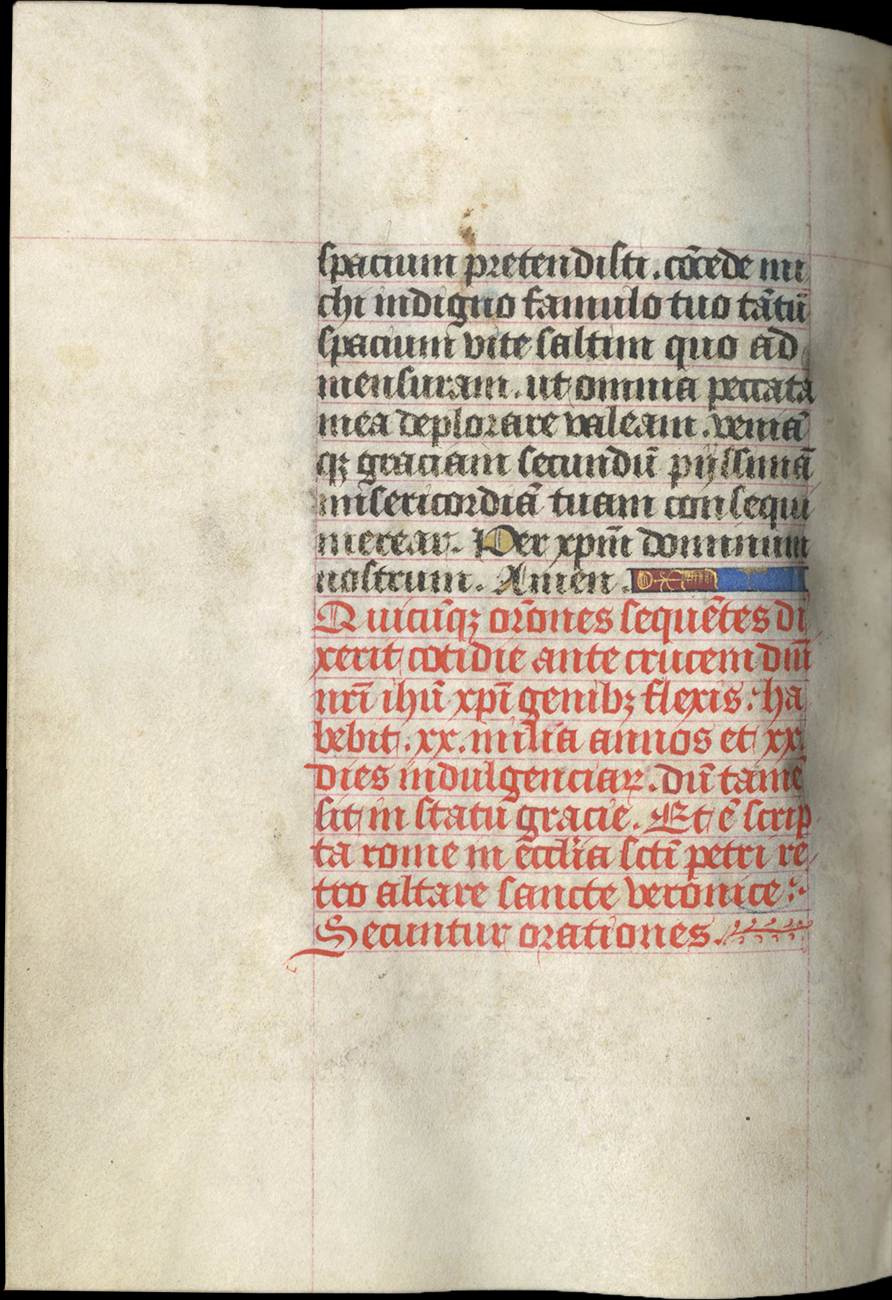 spacium pretendisti. cõcede mi
chi indigno famulo tuo tãtũ
spacium vite saltim quo ad
mensuram. ut omnia peccata
mea deplorare valeam. veniã
qꝫ graciam secundũ pijssimã
misericordiã tuam consequi
merear. Per xp̃m dominum
nostrum. Amen.
Quicũqꝫ orõnes sequẽtes di
xerit cotidie ante crucem dñi
nr̃i ihũ xpĩ genibꝫ flexis. ha
bebit. xx. milia annos et xx.
dies indulgenciaꝝ. dũ tamẽ
sit in statu gracie. Et ẽ scrip
ta rome in eccl̃ia sct̃i petri re
tro altare sancte veronice :·
Secuntur orationes.